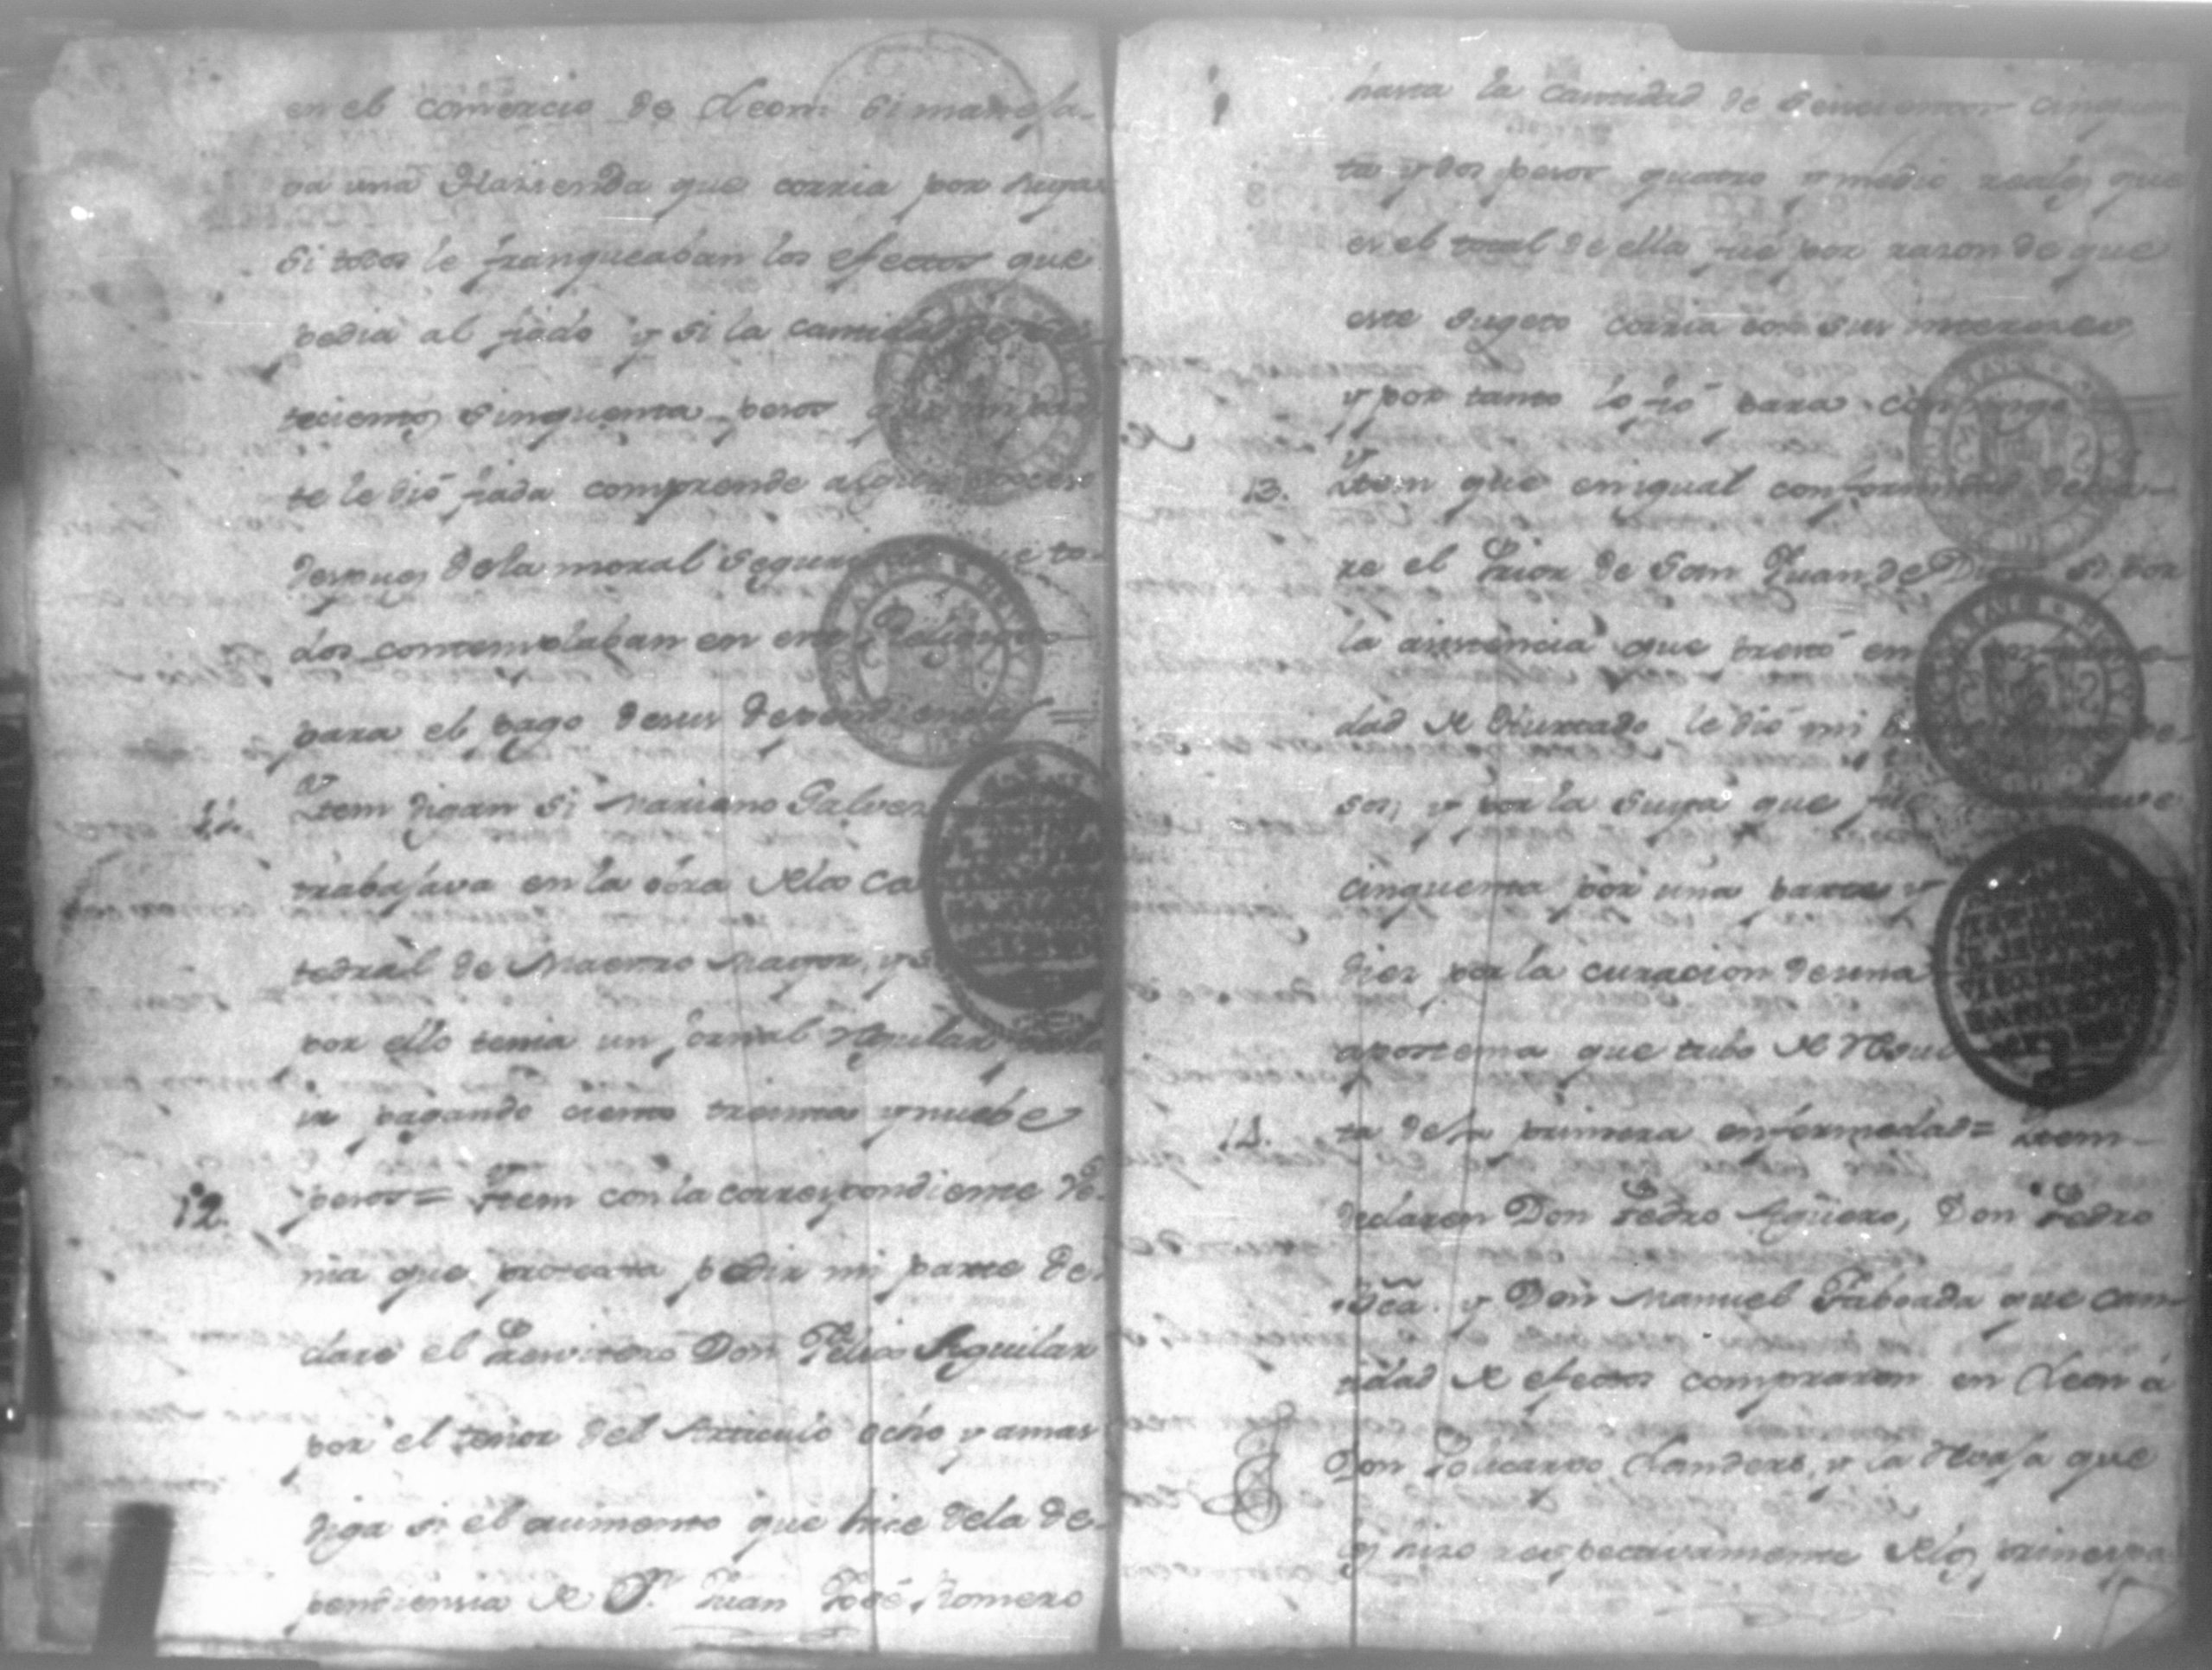 en el comercio de Leon. Si maneja-
va una Hazienda que corria por suya
Si todos le franqueaban los efectos que
pedia al fiado y si la cantidad de
tecientos sinquenta pesos que mi par
te le dió fiada comprende
despues de la moral seguridad que to-
dos contemplaban en este
para el pago de sus dependencias =
11. Ytem digan si Mariano Galvez
trabajava en la obra de la Ca
tedral de Maestro Mayor, y si
por ello tenia un jornal regular
ir pagando ciento treinta y nuebe
12. pesos = Ytem con la correspondiente Ve-
nia que protexta pedir mi parte de-
clare el Presvitero Don Felis Aguilar
por el tenor del Articulo ocho y amas
diga si el aumento que hice de la de-
pendiensia de Dn. Juan José Romero
hasta la cantidad de cinquen
ta y dos pesos quatro y medio reales que
es el total de ella fué por razon de que
este sugeto corria con sus intereses,
y por tanto lo fió para
13. Ytem que en igual conformidad decla-
re el Prior de San Juan de Dios si por
la asistencia que prestó en
dad de Hurtado le dió mi pe-
sos, y por la suya que fué
cinquenta por una parte y
diez por la curacion de una
apostema que tubo de
14. ta de la primera enfermedad = Ytem
declaren Don Pedro Agüero, Don Pedro
y Don Manuel Taboada que can-
tidad de efectos compraron en Leon á
Don Policarpo Landero, y la Revaja que
les hizo respectivamente de los principa